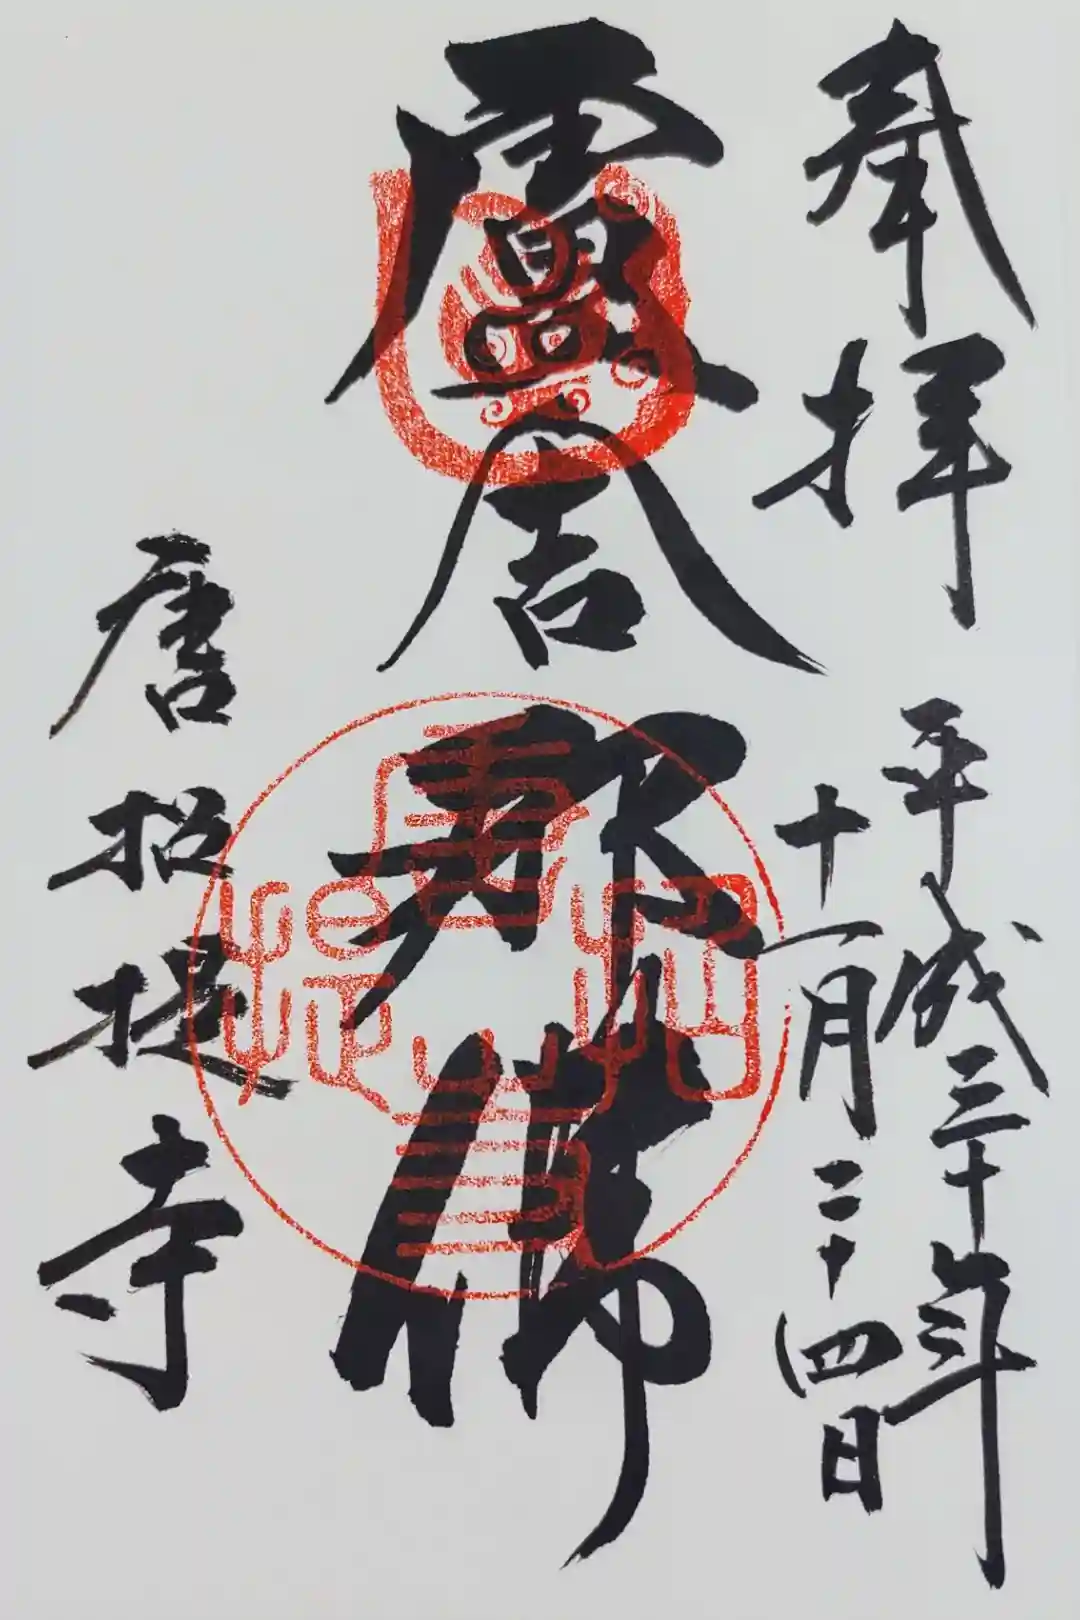 奉拝
平成三十年
十一月二十四日
盧舎那佛
唐招提寺